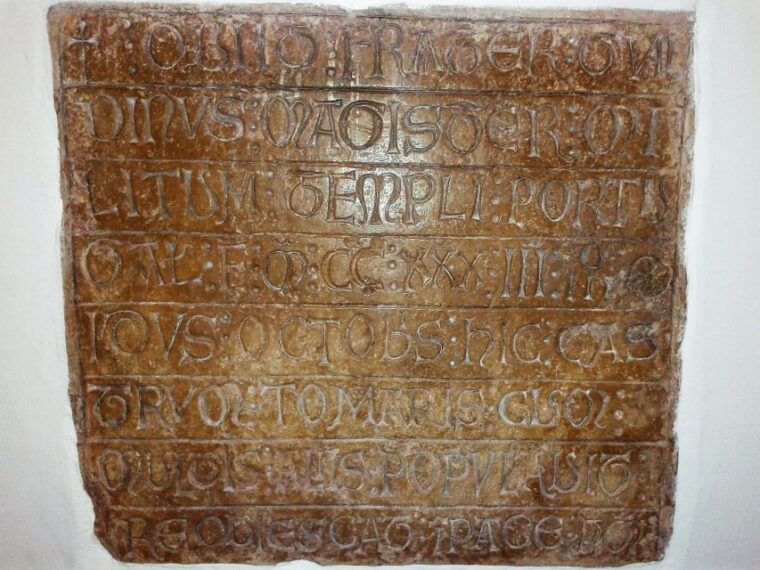 ✝ : OBIIT : FRATER : GUAL
DINVS : MAGISTER : MI
LITUM : TEMPLI : PORTU
GAL : E : M : CC : XXX : III :
IDVS : OCTOBS : HIC : CAS
TRVM : TOMARIS : CUM :
MULTIS : ALIIS : POPVLAVIT :
REQUIESCAT : I PACE :